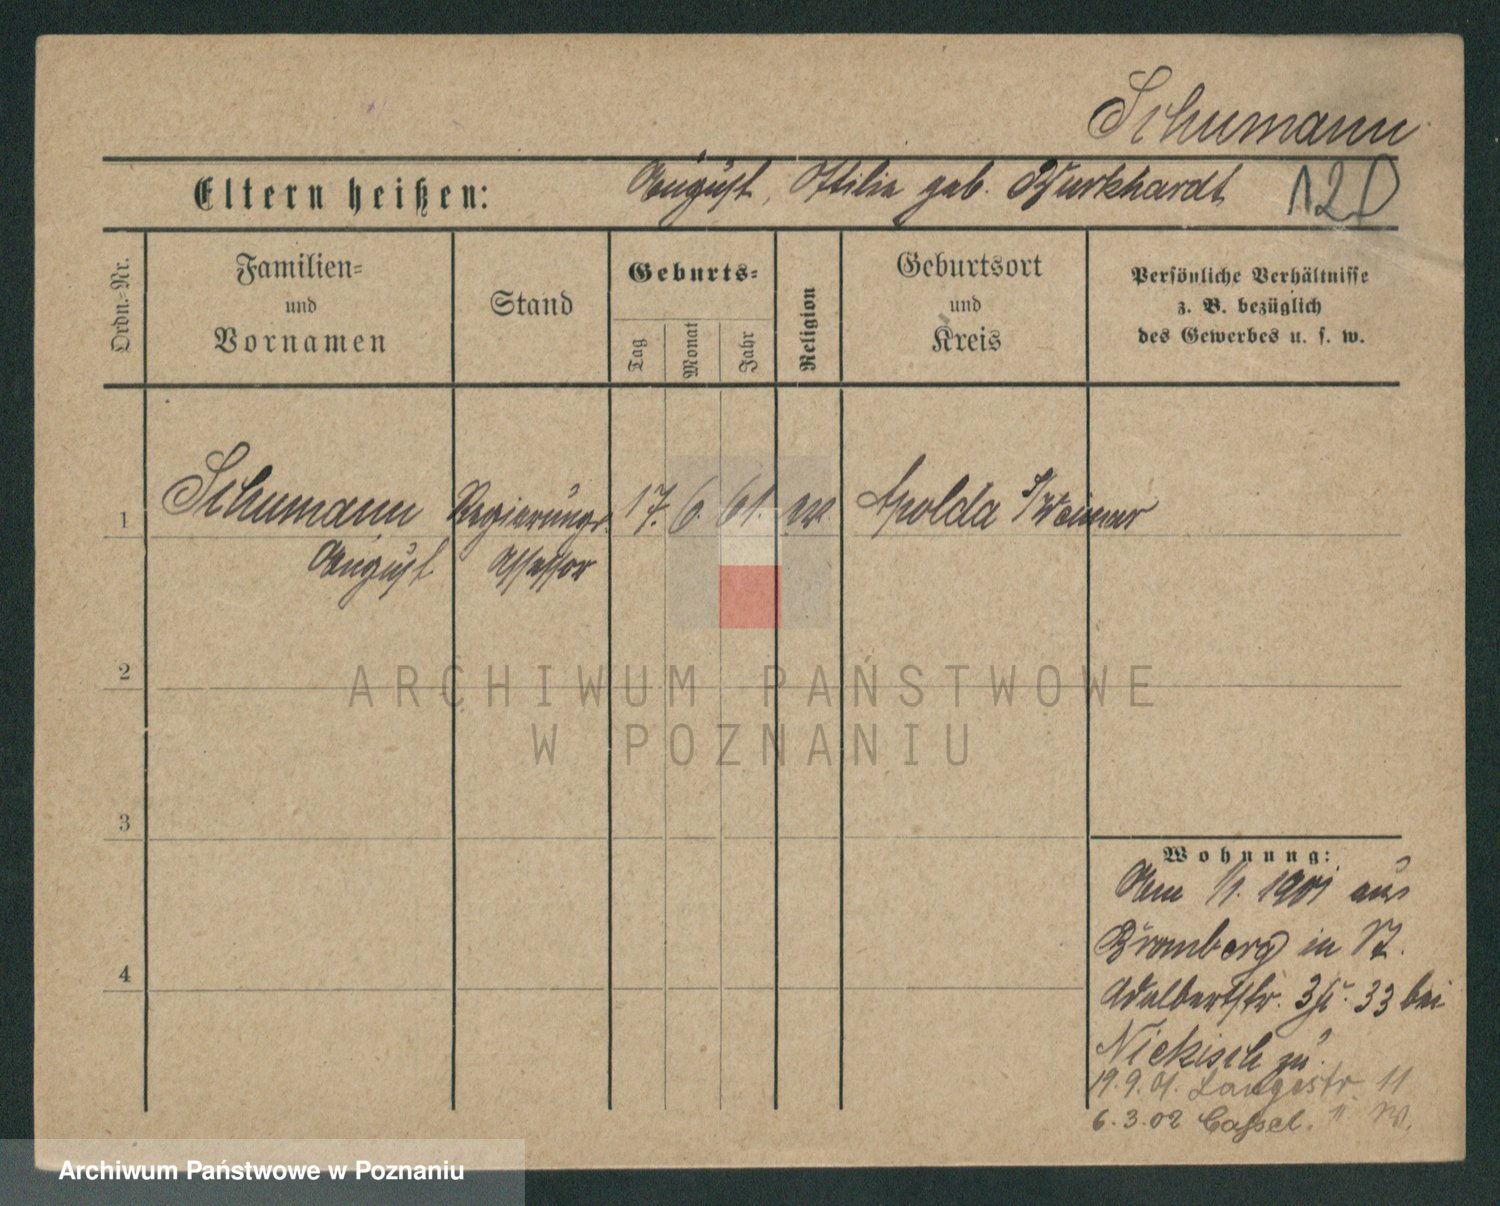 Schumann
Eltern heißen: August, Ottilie geb. Burkhardt
Ordn.-Nr.
Familien-
und
Vornamen
Stand
Geburts-
Tag
Monat
Jahr
Religion
Geburtsort
und
Kreis
Persönliche Verhältnisse
z. B. bezüglich
des Gewerbes u. s. w.
1 Schumann Regierungs. 17. 6. 61. ev. Apolda S/Weimar
August Assessor
2
ARCHIWUM PAŃSTWOWE
W POZNANIU
3
4
Wohnung:
Am 1/1. 1901 aus
Bromberg in St.
Adalbertstr. 33 bei
Nickisch zu.
19.9.01. Langestr 11
6.3.02 Cassel.
Archiwum Państwowe w Poznaniu